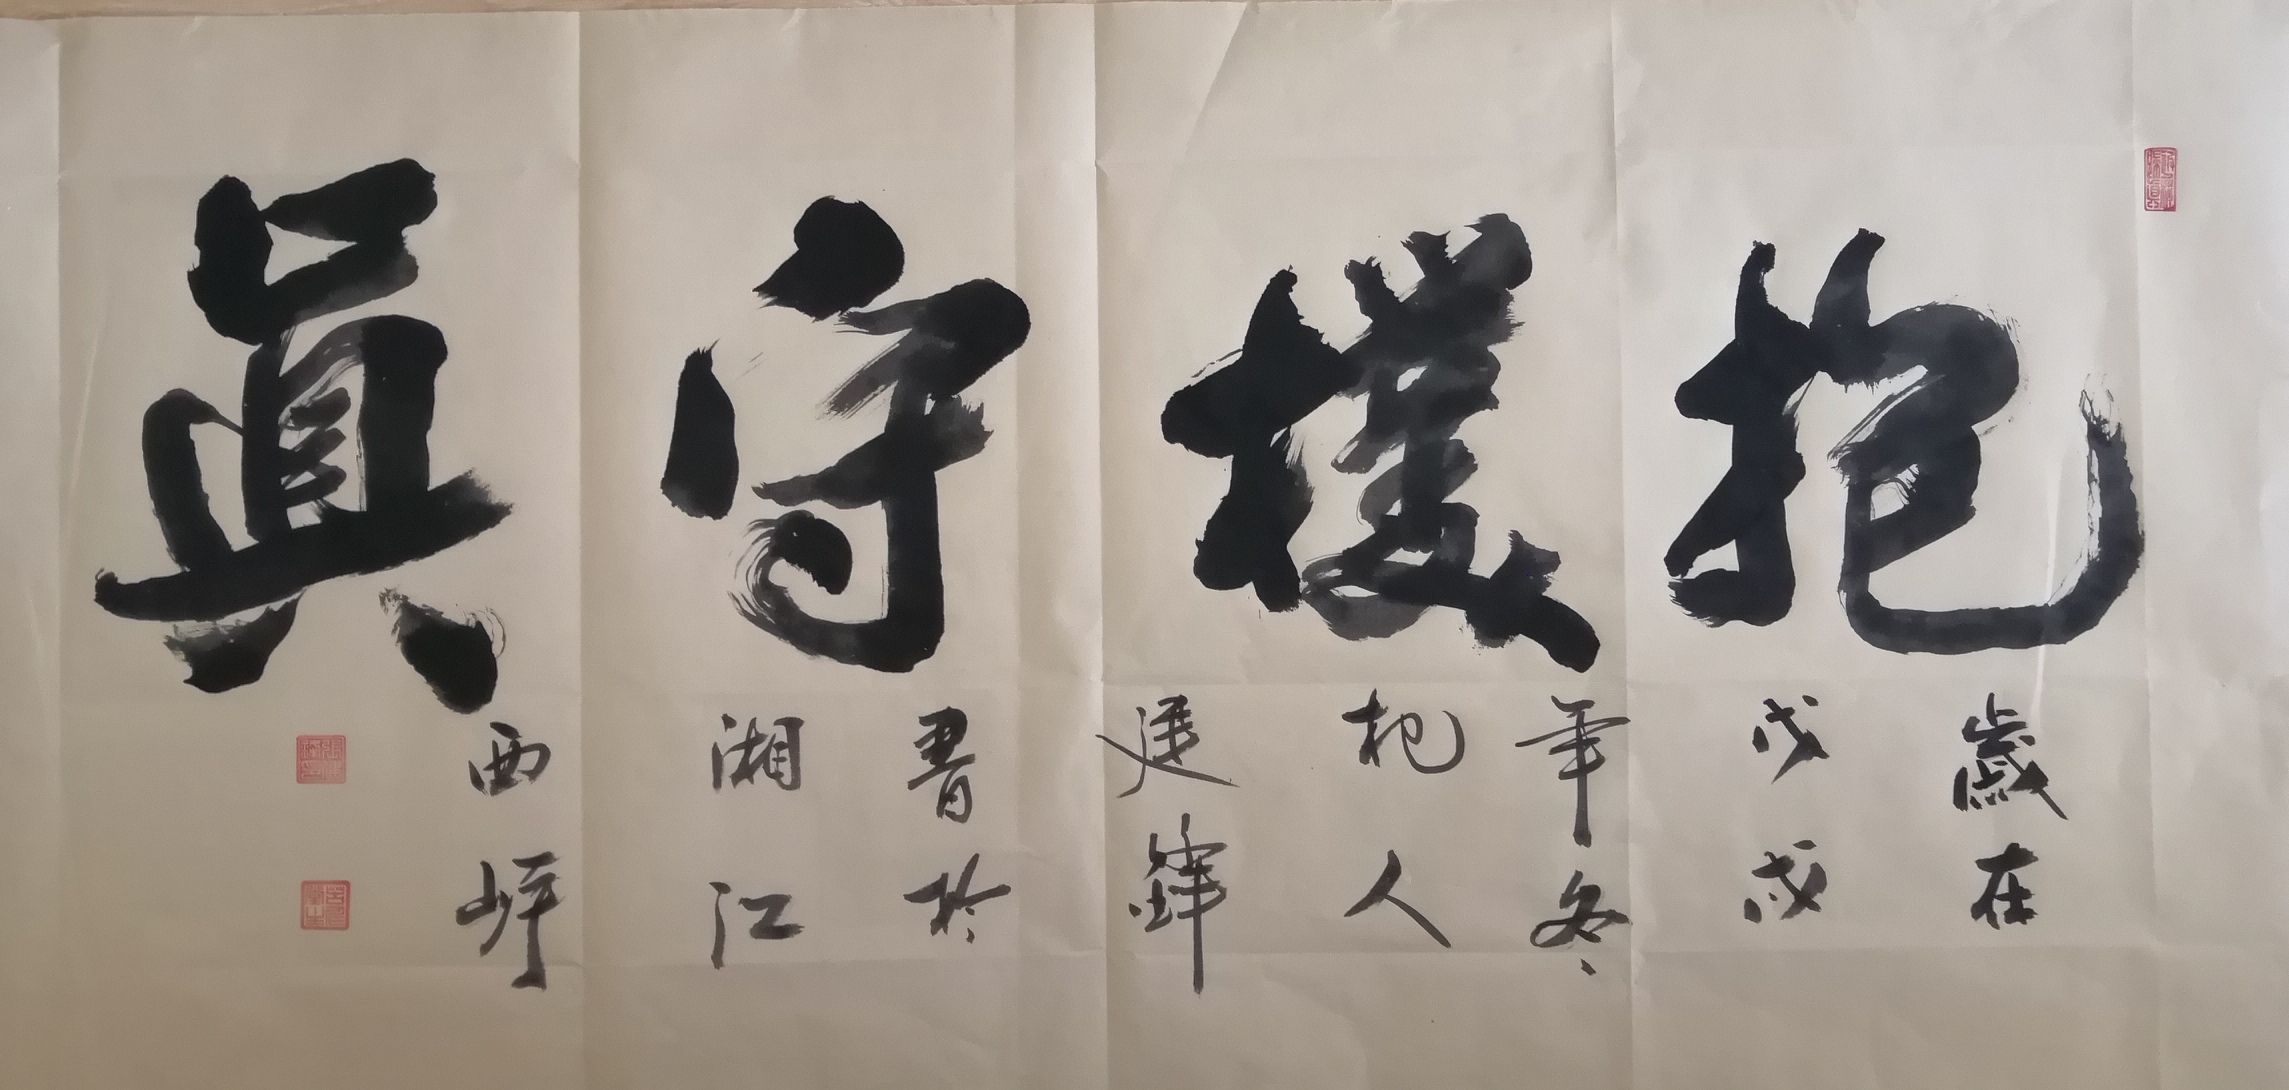 抱樸守真
歲在
戊戌
年冬
杞人
建鋒
書於
湘江
西岸